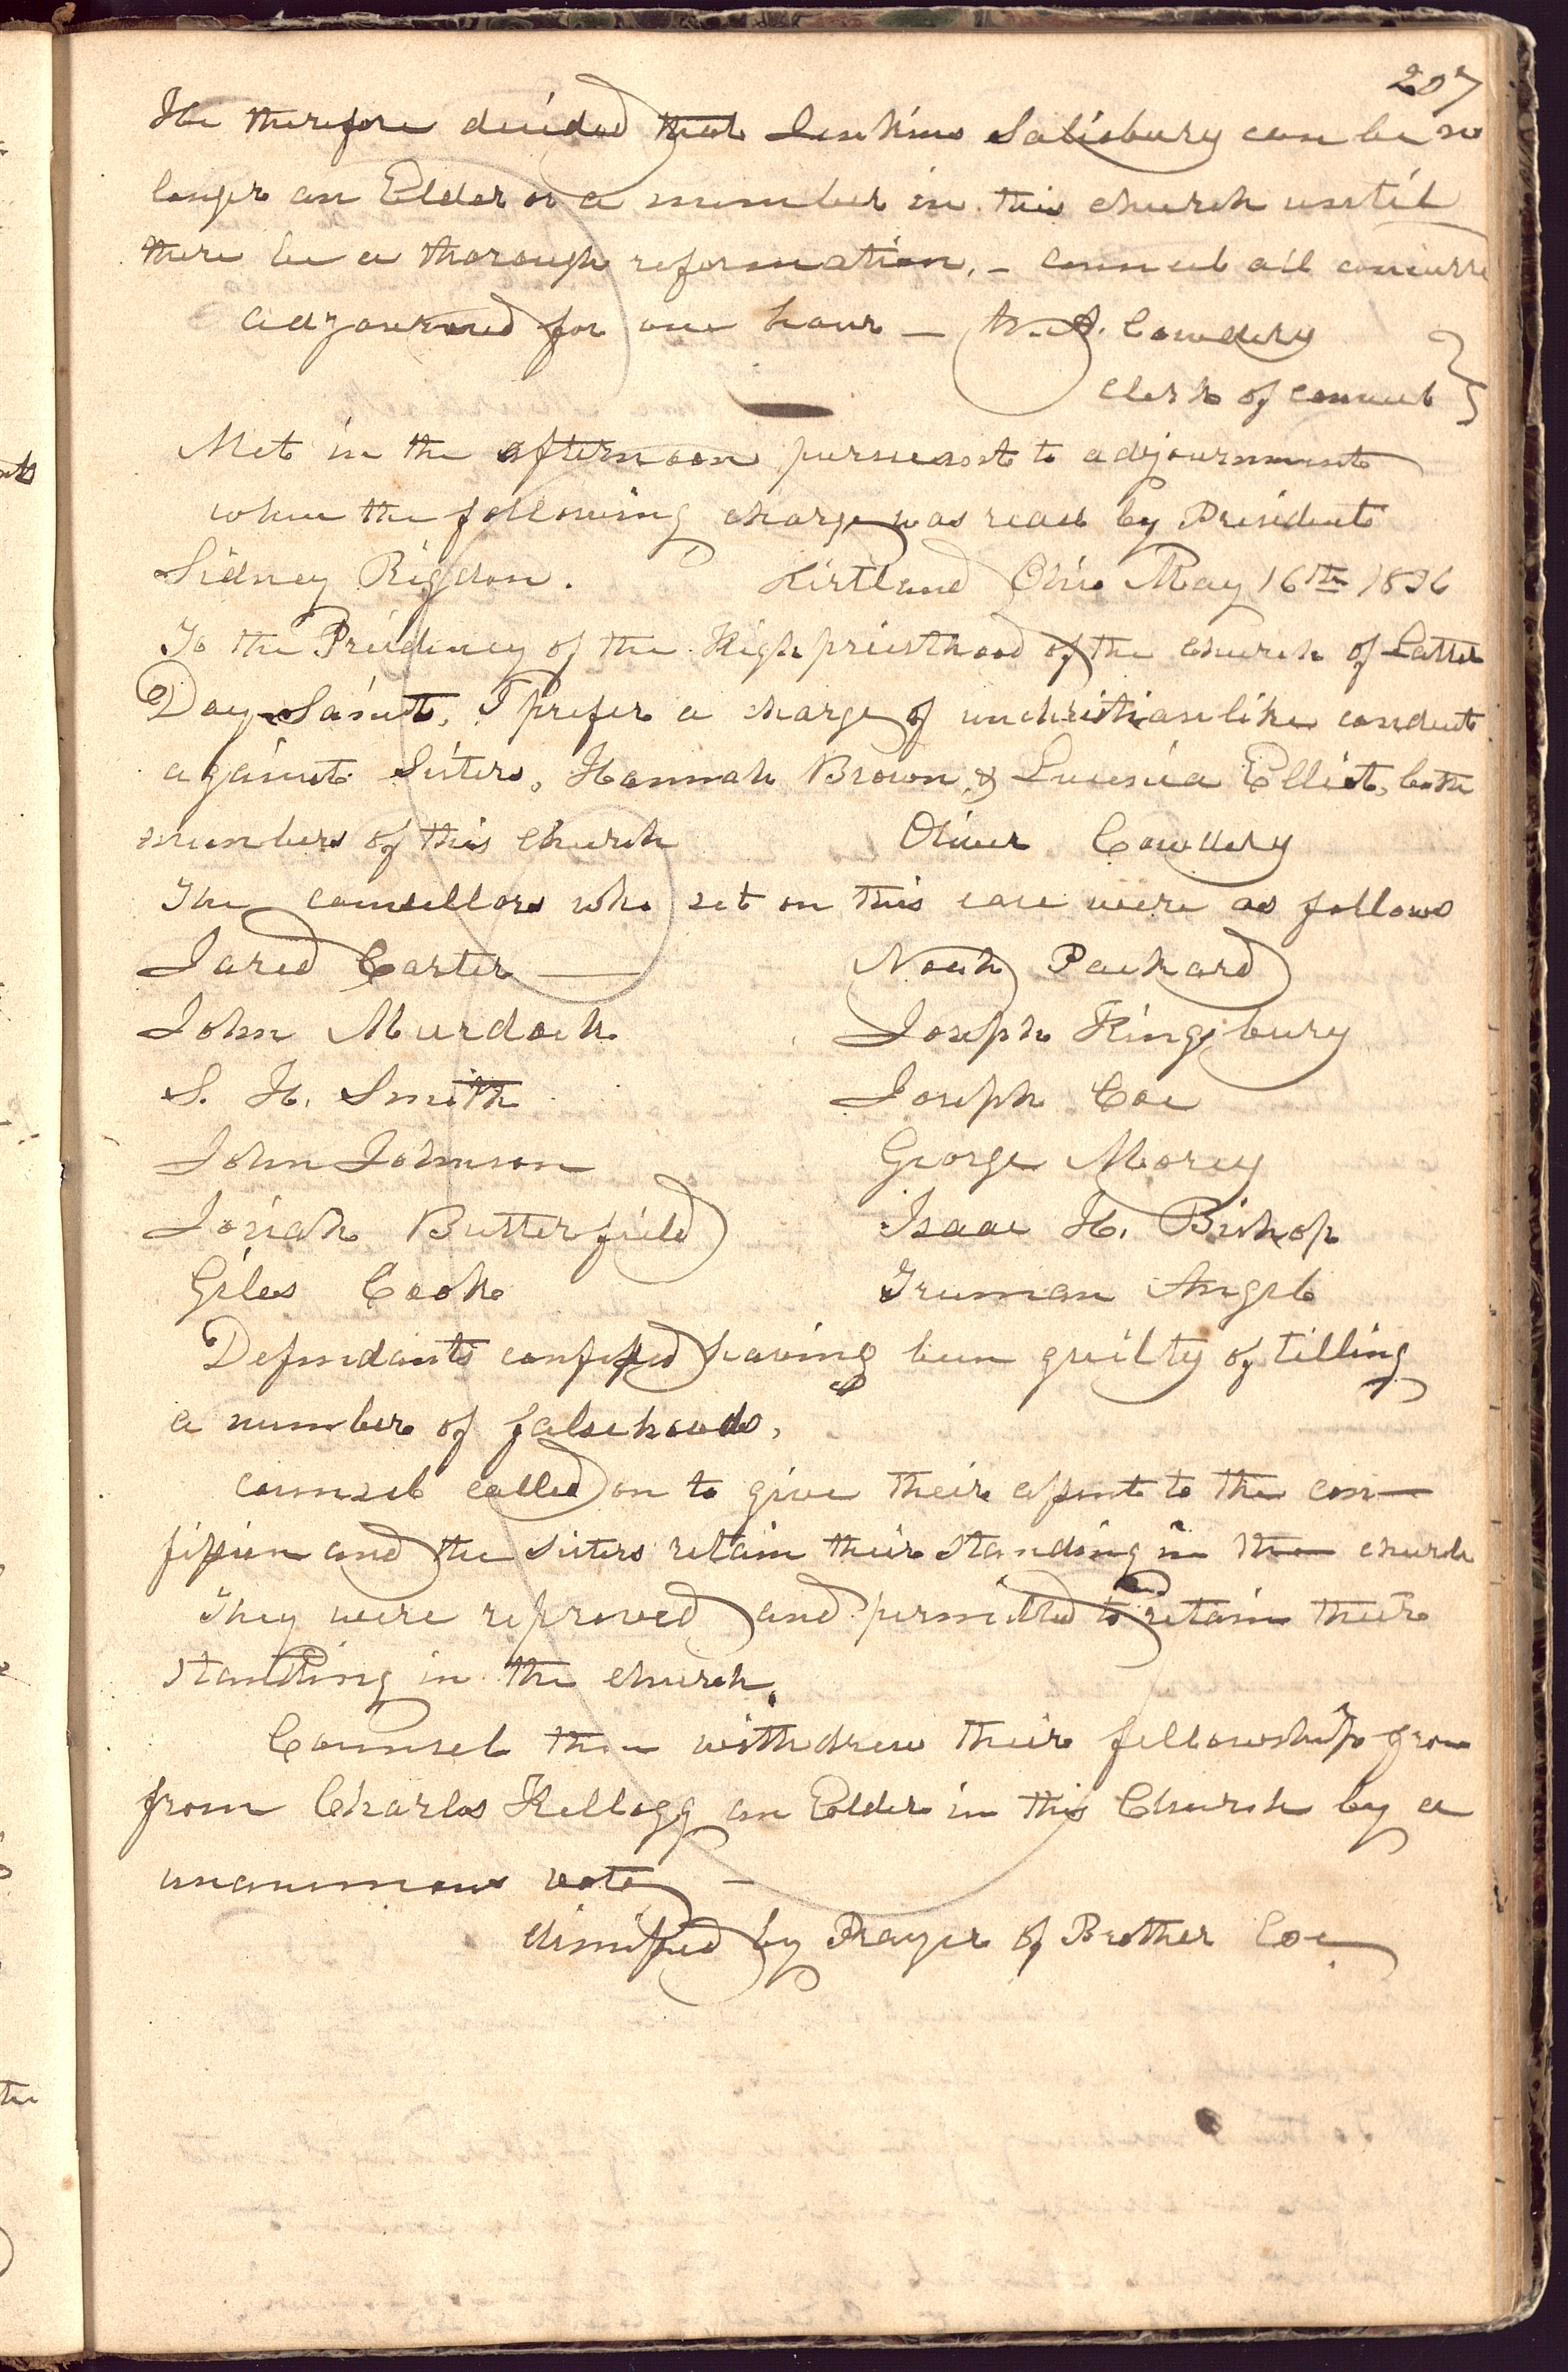 207
He therefore decided that Jenkins Salisbury can be no
longer an Elder or a member in this church until
there be a thorough reformation, - council all concurre
adjourned for one hour - W. A. Cowdery
clerk of council
Met in the afternoon pursuant to adjournment
when the following charge was read by President
Sidney Rigdon. Kirtland Ohio May 16th 1836
To the Presidency of the High priesthood of the church of Latter
Day Saints, I prefer a charge of unchristianlike conduct
against Sisters, Hannah Brown & Lucina Elliot, both
members of this church Oliver Cowdery
The counsellors who set on this case were as follows
Jared Carter — Noah Packard
John Murdock Joseph Kingsbury
S. H. Smith Joseph Coe
John Johnson George Morey
Josiah Butterfield Isaac H. Bishop
Giles Cook Truman Angel
Defendants confessed having been guilty of telling
a number of falsehoods,
counsel called on to give their assent to the con-
fission and the sisters retain their standing in the church
They were reproved and permitted to retain their
standing in the church.
Counsel then withdrew their fellowship from
from Charles Kellogg an Elder in this Church by a
unanimous vote -
dimissed by Prayer of Brother Coe